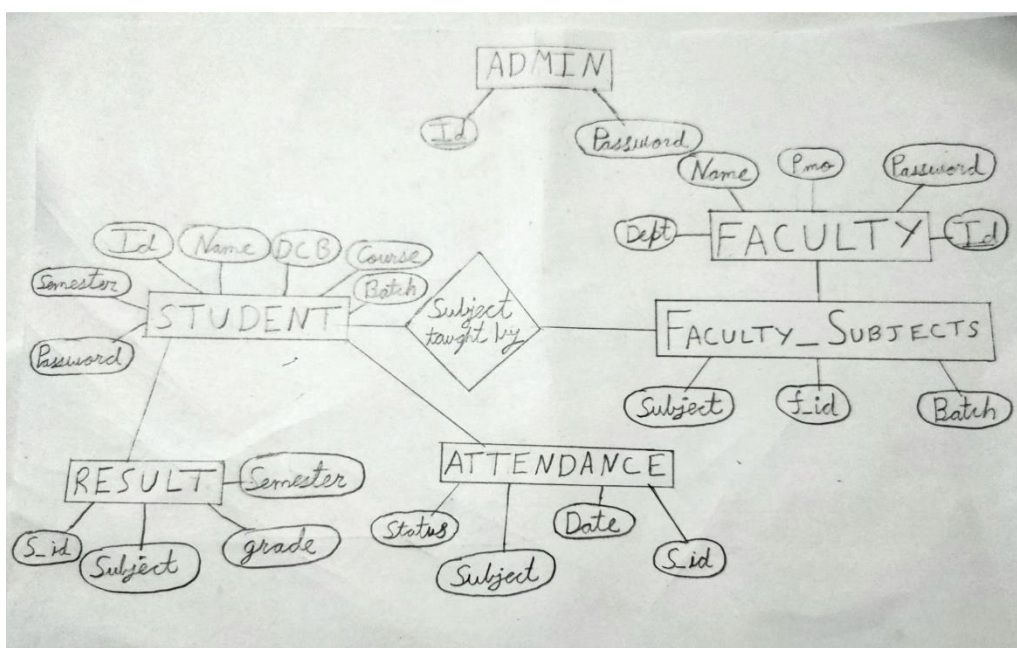 ADMIN
Id
Password
Name
Pmo
Password
Dept
FACULTY
Id
Id
Name
DCB
Course
Semester
Batch
STUDENT
Password
Subject
taught by
FACULTY_SUBJECTS
Subject
f_id
Batch
RESULT
Semester
S_id
Subject
grade
ATTENDANCE
Status
Subject
Date
S_id